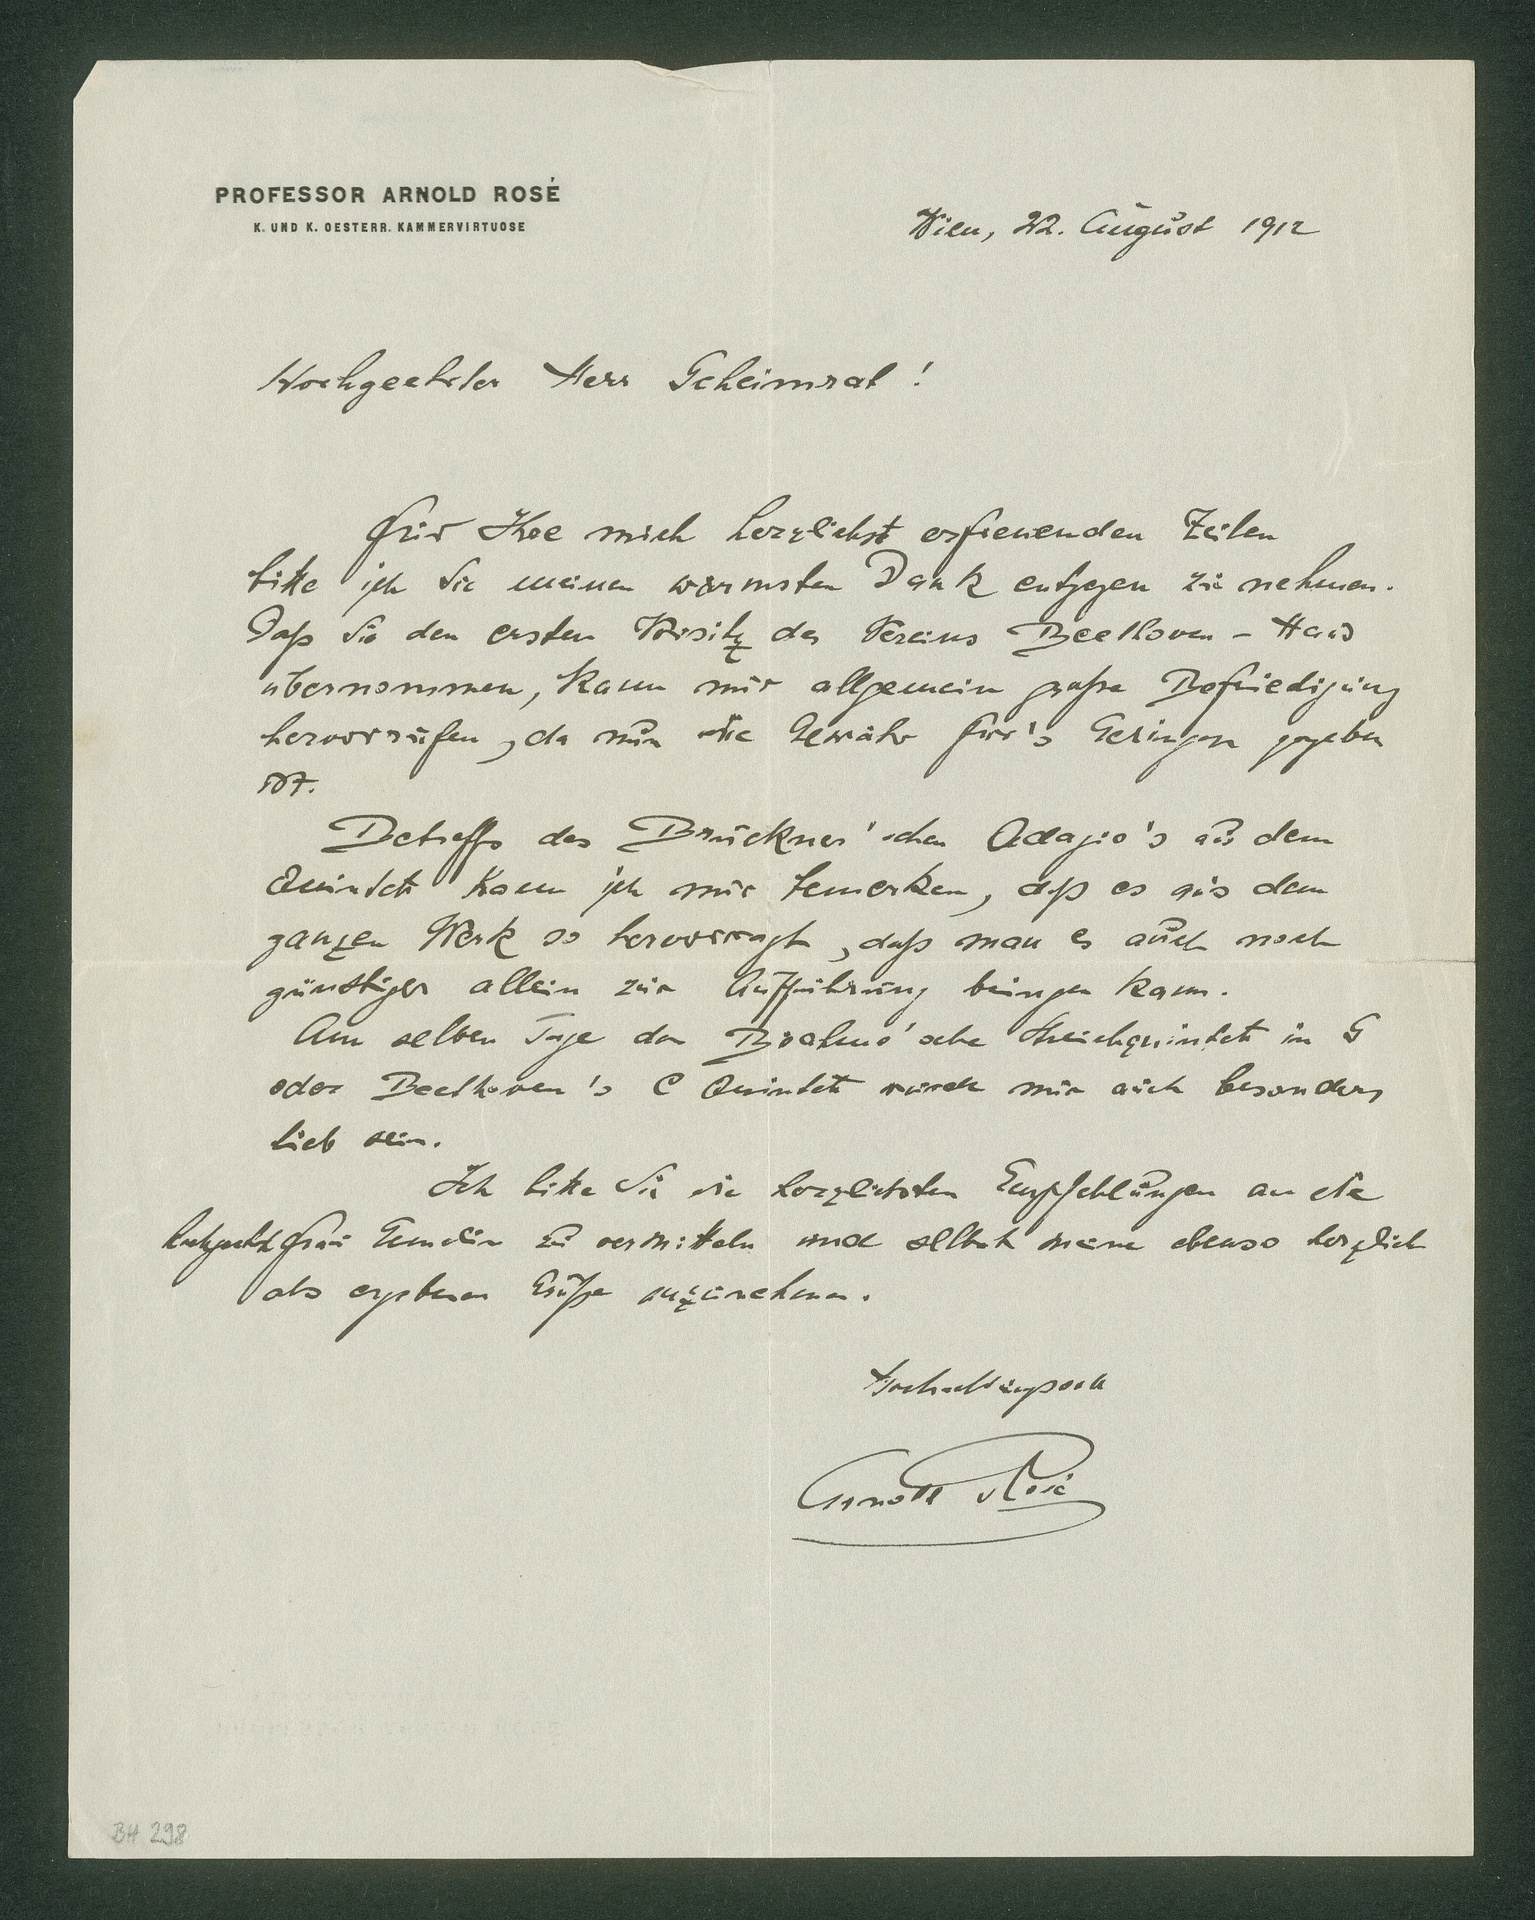 PROFESSOR ARNOLD ROSÉ
K. UND K. OESTERR. KAMMERVIRTUOSE
Wien, 22. August 1912
Hochgeehrter Herr Geheimrat!
Für Ihre mich herzlichst erfreuenden Zeilen
bitte ich Sie meinen wärmsten Dank entgegen zu nehmen.
Daß Sie den ersten Vorsitz des Vereins Beethoven-Haus
übernommen, kann nur allgemein große Befriedigung
hervorrufen, da nun die Gewähr für's Gelingen gegeben
ist.
Betreffs des Bruckner'schen Adagio's aus dem
Quintett kann ich nur bemerken, daß es aus dem
ganzen Werk so hervorragt, daß man es auch noch
günstiger allein zur Aufführung bringen kann.
Am selben Tage das Brahms'sche Streichquintett in G
oder Beethoven's C Quintett würde mir auch besonders
lieb sein.
Ich bitte Sie die herzlichsten Empfehlungen an die
hochgeehrte Frau Gemalin zu vermitteln und selbst meine ebenso herzlich
als ergebenen Grüße anzunehmen.
Hochachtungsvoll
Arnold Rosé
BH 298